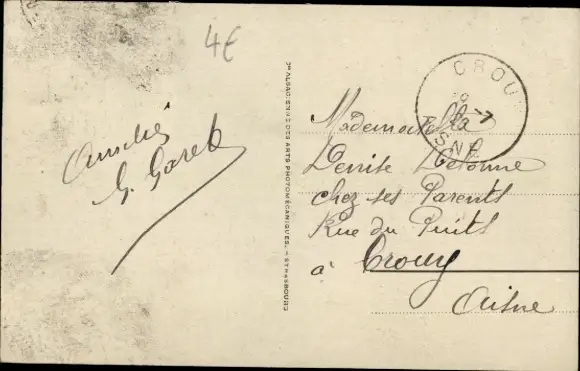 4€
Amitié
G. Garet
Cie ALSACIENNE DES ARTS PHOTOMÉCANIQUES. — STRASBOURG
CROUY
AISNE
Mademoiselle
Denise
chez ses Parents
Rue du Puits
à Crouy
Aisne